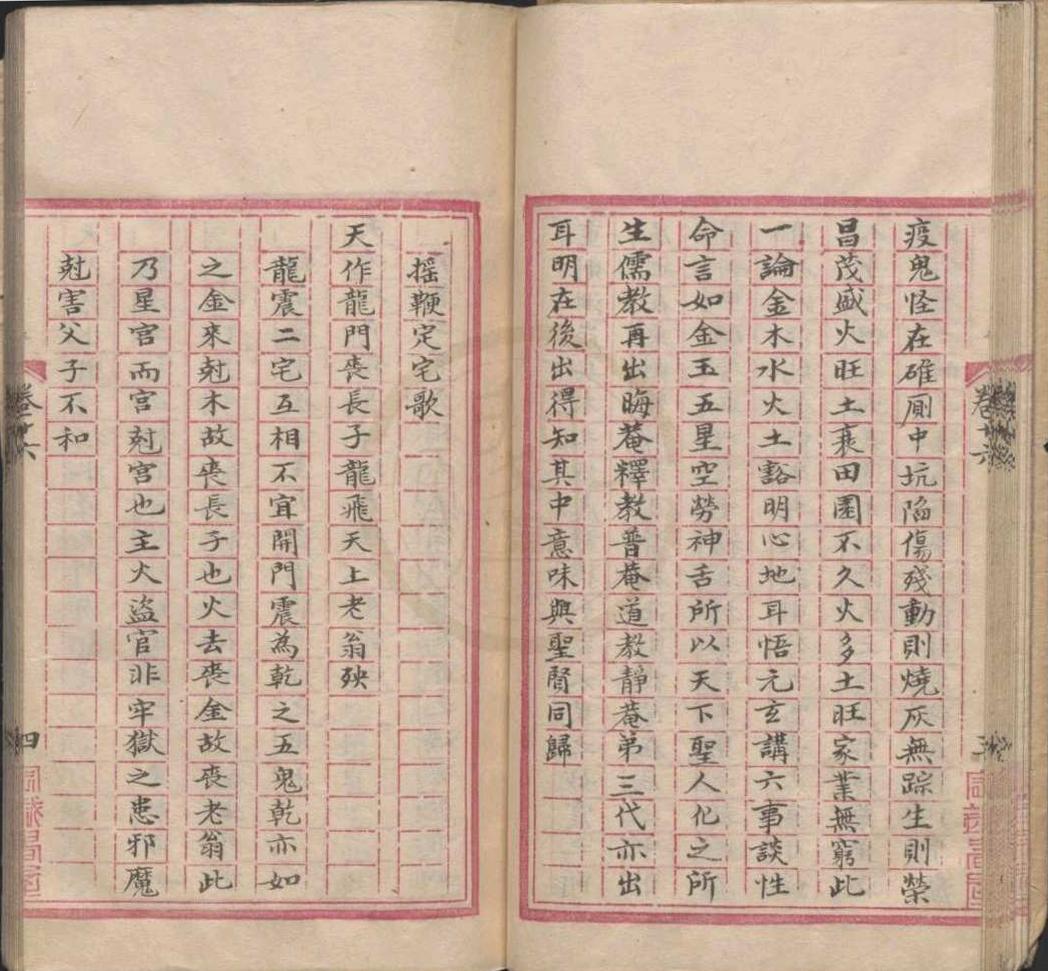 疫鬼怪在碓厠中坑陷傷殘動則燒灰無踪生則榮
昌茂盛火旺土衰田園不久火多土旺家業無窮此
一論金木水火土豁明心地耳悟元玄講六事談性
命言如金玉五星空勞神舌所以天下聖人化之所
生儒教再出晦菴釋教普菴道教靜菴弟三代亦出
耳明在後出得知其中意味與聖賢同歸
卷廿六
三
摇鞭定宅歌
天作龍門喪長子龍飛天上老翁殃
龍震二宅互相不宜開門震為乾之五鬼乾亦如
之金來尅木故喪長子也火去喪金故喪老翁此
乃星宫而宫尅宫也主火盜官非牢獄之患邪魔
尅害父子不和
卷廿六
四